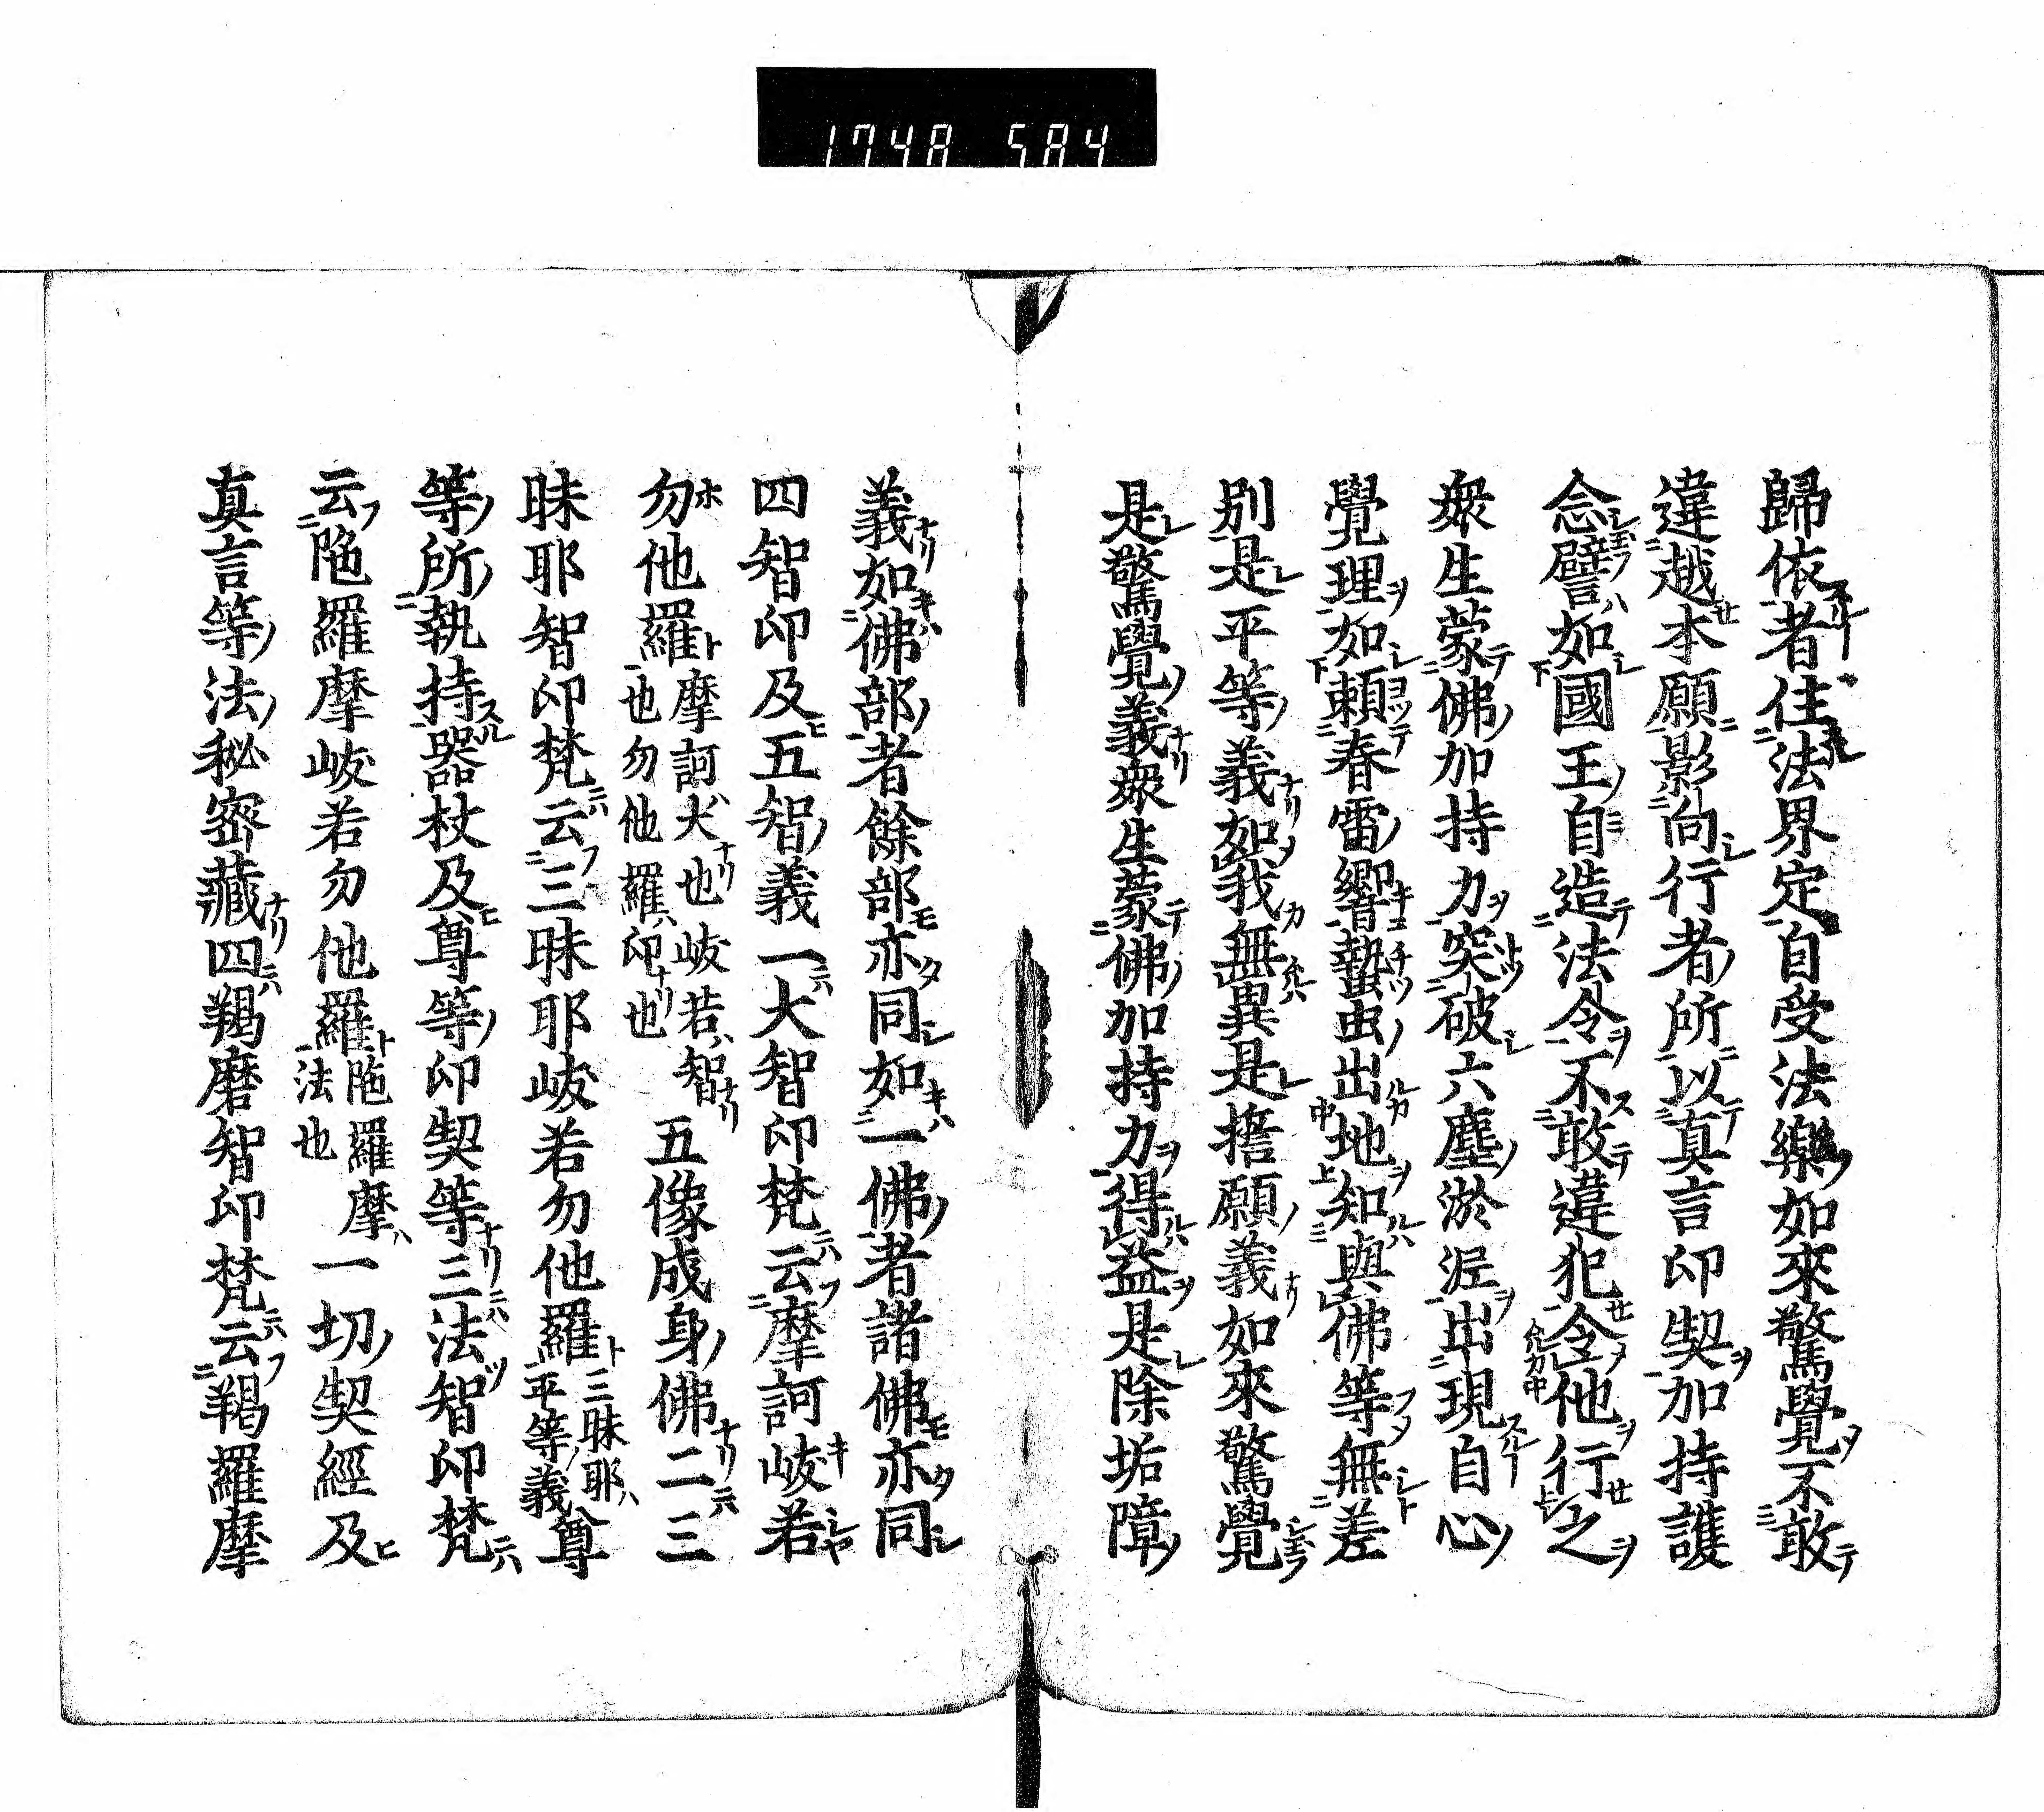 1748 584
歸依者住法界定自受法樂如來驚覺不敢
違越本願影向行者所以真言印契加持護
念譬如國王自造法令不敢違犯令他行之
衆生蒙佛加持力突破六塵淤泥出現自心
覺理如賴春雷響蟄虫出地知與佛等無差
別是平等義如我無異是擔願義如來驚覺
是驚覺義衆生蒙佛加持力得益是除垢障
義如佛部者餘部亦同如一佛者諸佛亦同
四智印及五智義一大智印梵云摩訶岐若
勿他羅摩訶大也岐若智也勿他羅印也五像成身佛二三
昧耶智印梵云三昧耶岐若勿他羅三昧耶平等義尊
等所執持器杖及尊等印契等三法智印梵
云陁羅摩岐若勿他羅陁羅摩法也一切契經及
真言等法秘密藏四羯磨智印梵云羯羅摩